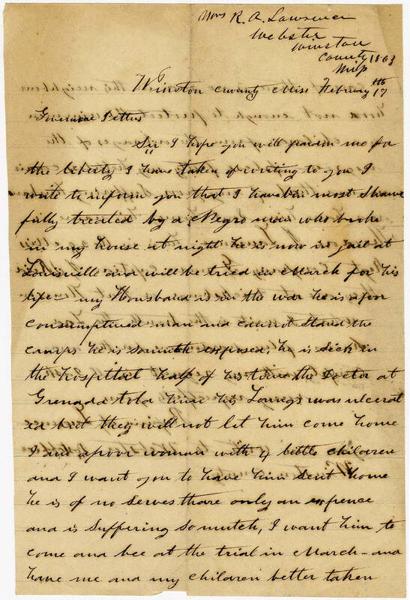 Mrs R. A. Lawrence
Webster
Winston
County 1863
Miss
Winston county Miss February 17th
Governor Pettus
Sir I hope you will pardon me for
the liberty I have taken of writing to you I
write to inform you that I have bin most shame
fully treated by a Negro man who broke
in my house at night he is now in jail at
Louisville and will be tried in March for his
life my Housband is in the war he is a poor
consumptined man and cannot stand the
camps he is so mutch exposed, he is sick in
the hospittal half of his time the Doctor at
Grenada told him his Loungs was ulcerat
but they will not let him come home
I am a poor woman with 4 little children
and I want you to have him sent home
he is of no serves thare only an expence
and is suffering so mutch, I want him to
come and bee at the trial in March and
have me and my children better taken